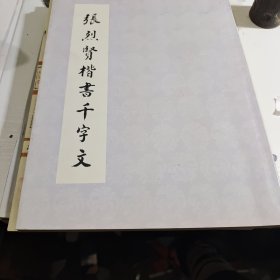 張烈賢楷書千字文